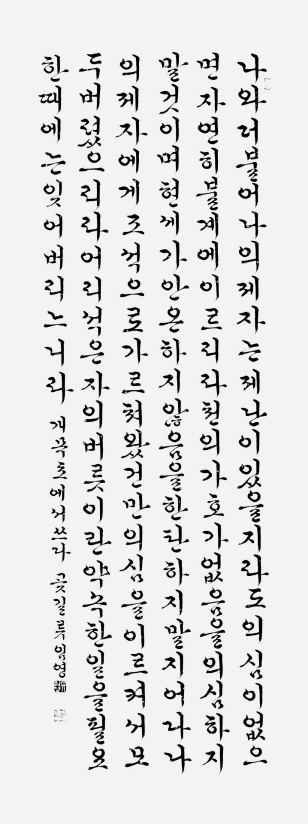 나와더불어나의제자는제난이있을지라도의심이없으
면자연히불계에이르리라천의가호가없음을의심하지
말것이며현세가안온하지않음을한탄하지말지어다나
의제자에게조석으로가르쳐왔건만의심을이르켜서모
두버렸으리라어리석은자의버릇이란약속한일을필요
한때에는잊어버리느니라 개목초에서쓰다 곳길류임영